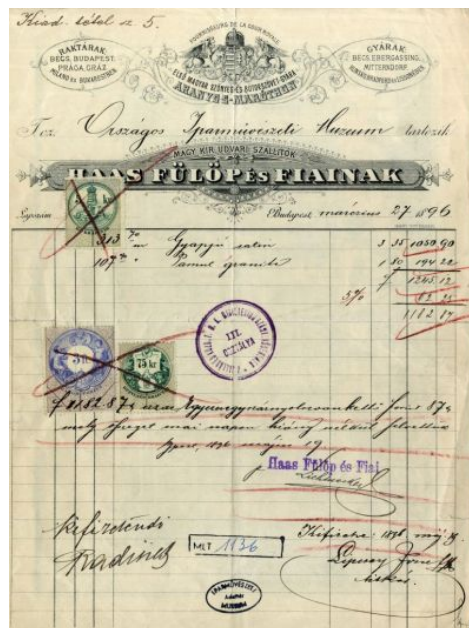 Kiad. tétel sz. 5.
FOURNISSEURS DE LA COUR ROYALE
RAKTÁRAK:
BECS, BUDAPEST,
PRÁGA, GRÁZ
MILANO ÉS BUKARESTBEN.
GYÁRAK:
BECS, EBERGASSING,
MITTERNDORF,
ELSŐ MAGYAR SZŐNYEG- ÉS BUTORSZÖVET-GYÁRA
ARANYOS-MARÓTHON
Országos Iparművészeti Muzeum tartozik
MAGY. KIR. UDVARI SZÁLLITÓK
HAAS FÜLÖP ÉS FIAINAK
Lapszám
Budapest, márczius 27 1896
313 70 m Gyapju satin 3 35 1050.90
107 m Pamut granite 1 80 194 22
1245.12
5% 62 25
1182 87
III.
OSZTÁLYA
5 75 kr
f 1182.87
mai napon hiány nélkül felvettük
1896 május 19
Haas Fülöp és Fiai
Kifizetendő
Radisics
Kifizetve: 1896 máj.
MLT 1136
IPARMŰVÉSZETI
Adattár
MUZEUM